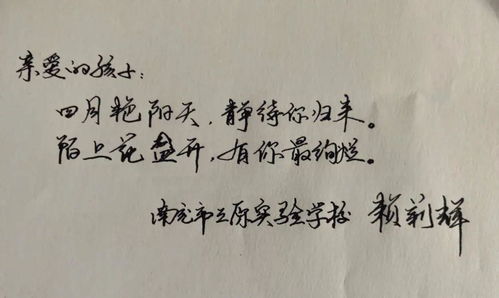 亲爱的孩子：
四月艳阳天，静待你归来。
陌上花盛开，有你最绚烂。
南充市五原实验学校 赖莉辉